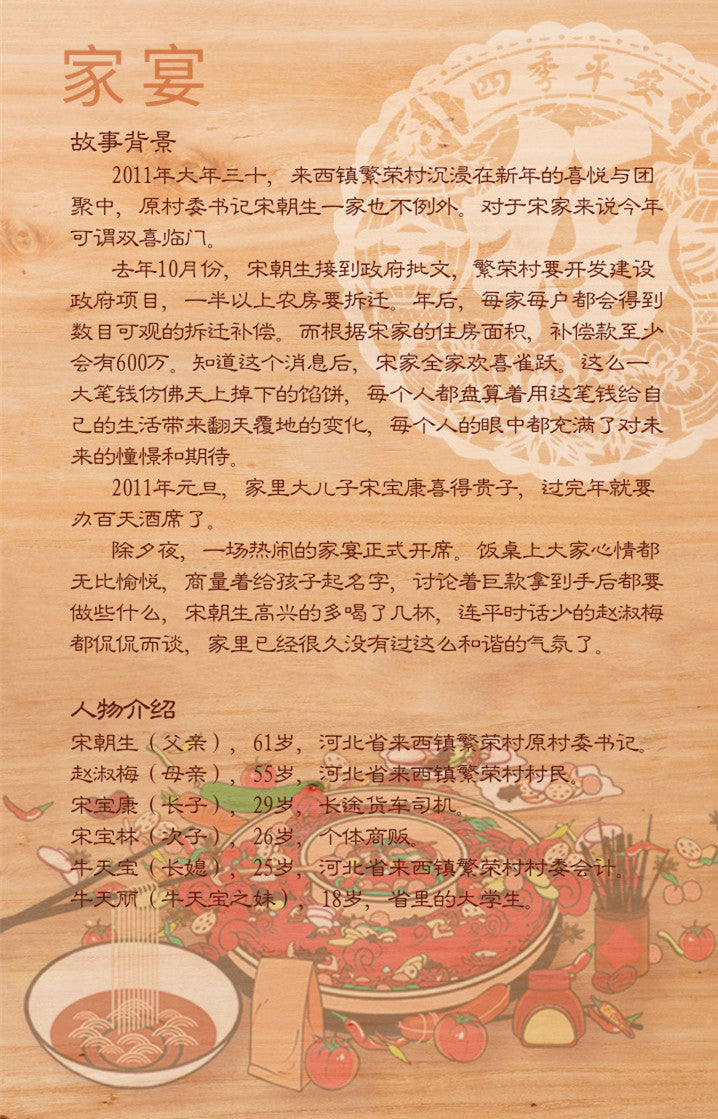 家宴
四季平安
福
故事背景
2011年大年三十，来西镇繁荣村沉浸在新年的喜悦与团
聚中，原村委书记宋朝生一家也不例外。对于宋家来说今年
可谓双喜临门。
去年10月份，宋朝生接到政府批文，繁荣村要开发建设
政府项目，一半以上农房要拆迁。年后，每家每户都会得到
数目可观的拆迁补偿。而根据宋家的住房面积，补偿款至少
会有600万。知道这个消息后，宋家全家欢喜雀跃。这么一
大笔钱仿佛天上掉下的馅饼，每个人都盘算着用这笔钱给自
己的生活带来翻天覆地的变化，每个人的眼中都充满了对未
来的憧憬和期待。
2011年元旦，家里大儿子宋宝康喜得贵子，过完年就要
办百天酒席了。
除夕夜，一场热闹的家宴正式开席。饭桌上大家心情都
无比愉悦，商量着给孩子起名字，讨论着巨款拿到手后都要
做些什么，宋朝生高兴的多喝了几杯，连平时话少的赵淑梅
都侃侃而谈，家里已经很久没有过这么和谐的气氛了。
人物介绍
宋朝生（父亲），61岁，河北省来西镇繁荣村原村委书记。
赵淑梅（母亲），55岁，河北省来西镇繁荣村村民。
宋宝康（长子），29岁，长途货车司机。
宋宝林（次子），26岁，个体商贩。
牛天宝（长媳），25岁，河北省来西镇繁荣村村委会计。
牛天丽（牛天宝之妹），18岁，省里的大学生。